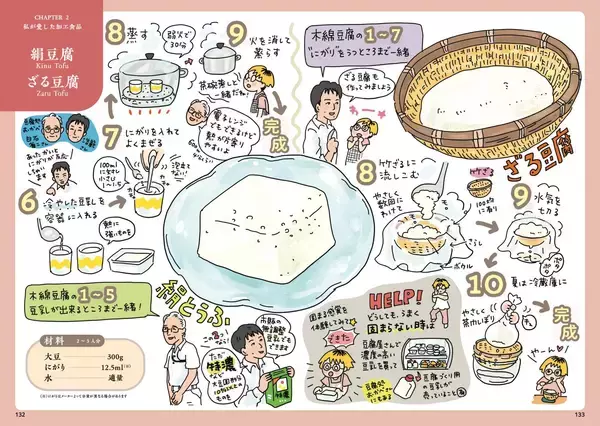 CHAPTER 2
私が愛した加工食品
絹豆腐
Kinu Tofu
ざる豆腐
Zaru Tofu
木綿豆腐の1〜5
豆乳が出来るところまで一緒!
6 冷やした豆乳を
容器に入れる
熱に
強いものを
7 にがりを入れて
よくまぜる
100mlに
8 蒸す
弱火で
30分
茶碗蒸しと
一緒だね!
9 火を消して
蒸らす
電子レンジ
でもできるけど
熱が片寄り
やすいよ
完成
絹とうふ
市販の
無調整
豆乳でも
できます
ただし
特濃
大豆固形分
10%以上の
ものを
木綿豆腐の1〜7
"にがり"をうつところまで一緒
ざる豆腐も
作ってみましょう
ざる豆腐
8 竹ざるに
流しこむ
やさしく
数回に
わけて
さらし
ボウル
竹ザル
100均
9 水気を
切る
10 夏は冷蔵庫に
やさしく
茶巾しぼり
完成
やーん
固まる感覚を
体験してみて
できた
HELP!
どうしても、うまく
固まらない時は
豆腐屋さんで
濃度の高い
豆乳を買って
豆腐づくり用
の豆乳が
売っていること
材料
2〜3人分
大豆 300g
にがり 12.5ml(※)
水 適量
132
133